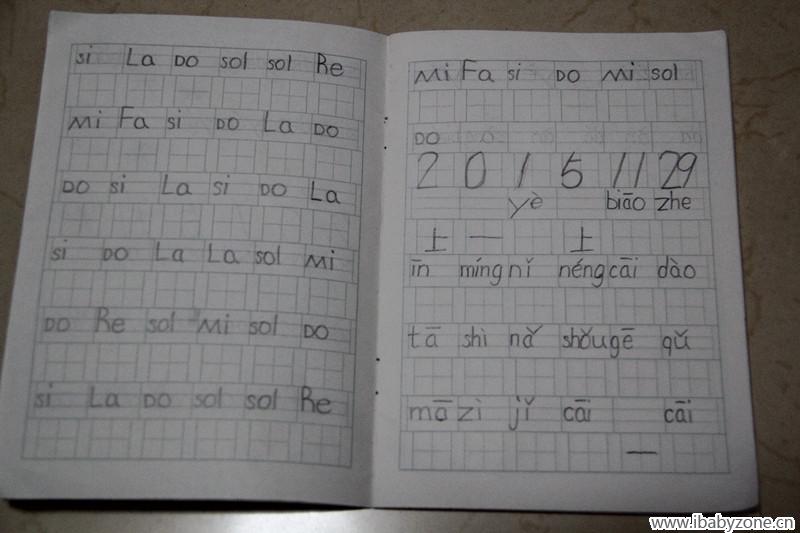 si La DO sol sol Re
Mi Fa si DO La DO
DO si La si DO La
si DO La La sol Mi
DO Re sol Mi sol DO
si La DO sol sol Re
Mi Fa si DO Mi sol
DO
2 0 1 5 11 29
yè biāo zhe
上 一 上
īn míng nǐ néng cāi dào
tā shì nǎ shǒu gē qǔ
mā zì jǐ cāi cāi
一
www.ibabyzone.cn